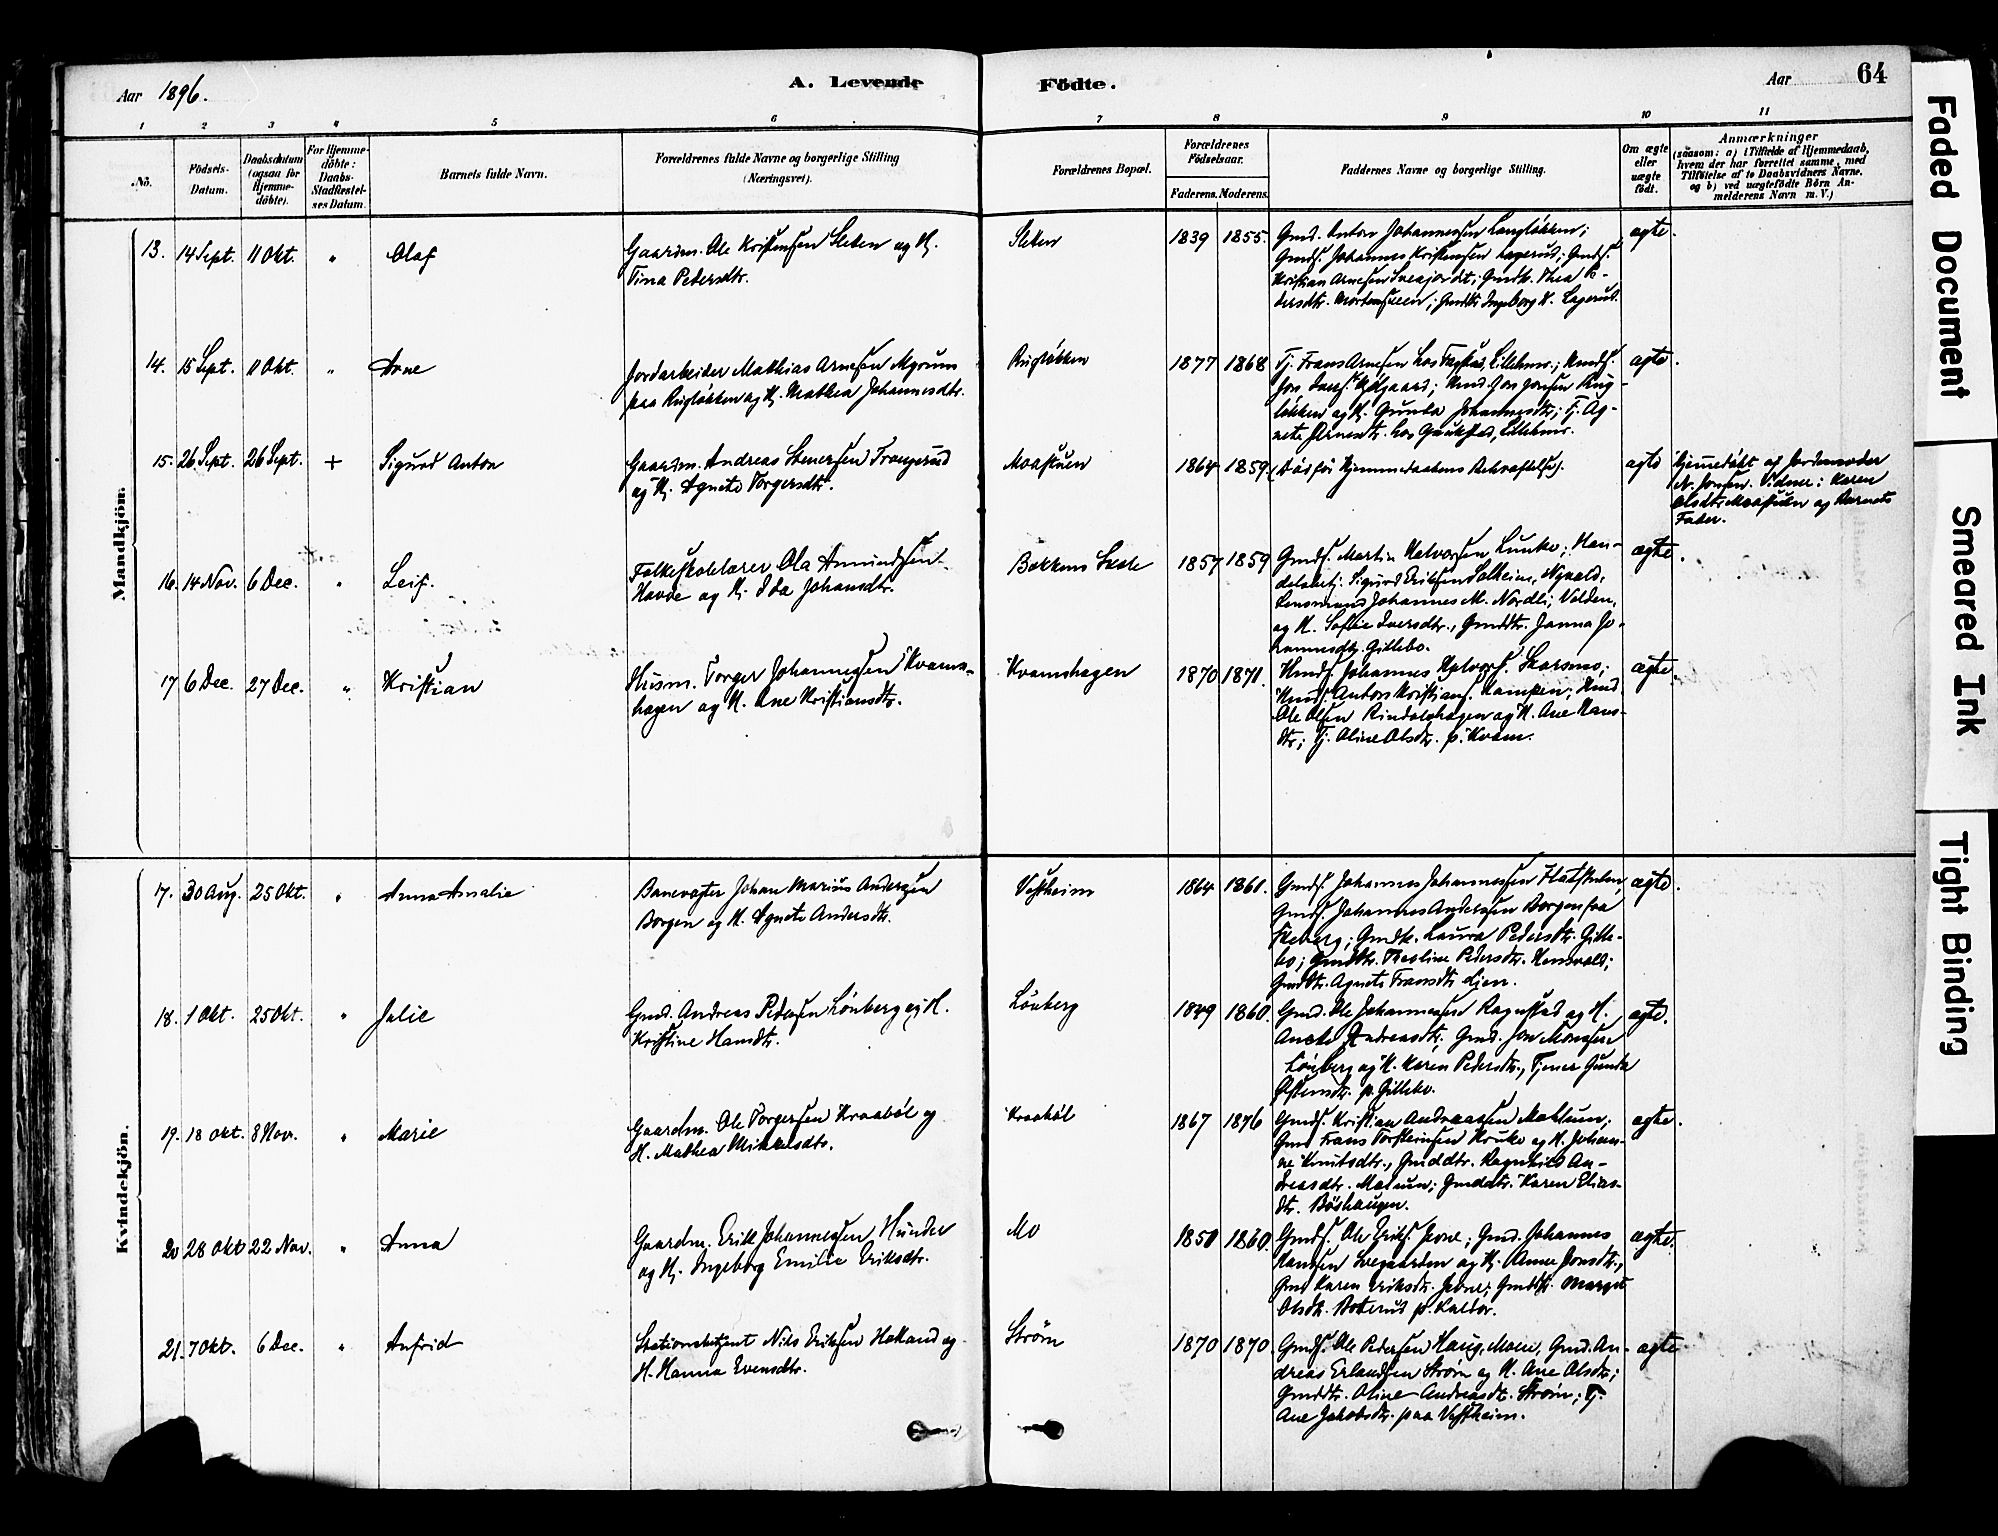 Aar 1896.
A. Levende Födte.
Aar 64
1 2 3 4 5 6 7 8 9 10 11
No.
Födsels-Datum.
Daabsdatum (ogsaa for Hjemme-döbte).
For Hjemme-döbte: Daabs-Stadfæstelses Datum.
Barnets fulde Navn.
Forældrenes fulde Navne og borgerlige Stilling (Næringsvei).
Forældrenes Bopæl.
Forældrenes Födselsaar.
Faderens. Moderens.
Faddernes Navne og borgerlige Stilling.
Om ægte eller uægte födt.
Anmærkninger
(saasom: a) i Tilfælde af Hjemmedaab, hvem der har forrettet samme, med Tilföielse af to Daabsvidners Navne, og b) ved uægtefödte Börn Anmelderens Navn m. V.)
Mandkjön.
13. 14 Sept. 11 Okt. " Olaf
Gaardm. Ole Kristensen Sleken og H.
Tina Pedersdtr.
Sleken 1839 1855.
Gmd. Anton Johannessen Langløkken;
Gmds. Johannes Kristensen Lagerud; Gmds.
Kristian Arnesen ; Gmdtr. Thea Pe-
dersdtr. ; Gmdtr. Ingeborg K. Lagerud.
ægte.
14. 15 Sept. 11 Okt. " Arne
Jordarbeider Mathias Arnesen Myrum
paa Rugløkken og H. Mathea Johannesdtr.
Rugløkken 1877 1868
Tj. Frans Arnesen hos , Lillehmr.;
; Jon Jonsen Rug-
løkken og H. Gunda Johannesdtr.; Tj. Ag-
nete Arnesdtr. hos , Lillehmr.
ægte.
15. 26 Sept. 26 Sept. + Sigurd Anton
Gaardm. Andreas Stenersen Trangerud
og H. Agnete Torgersdtr.
Moastuen 1864 1859.
(Død før Hjemmedaabens Bekræftelse).
ægte
Hjemmedøbt af Jordemoder
N. Jonsen. Vidner: Karen
Olsdtr. Moastuen og Barnets
Fader.
16. 14 Nov. 6 Dec. " Leif.
Folkeskolelærer Ola Amundsen
Havde og H. Ida Johansdtr.
Bakkens Skole 1857 1859
Gmds. Martin Halvorsen Lunke; Han-
delsbetj. Sigurd Eriksen Solheim, ,
Lensmand Johannes M. Nordli, Volden,
og H. Sofie Iversdtr., Gmddtr. Janna Jo-
hannesdtr. Gillebo.
ægte.
17 6 Dec. 27 Dec. " Kristian
Husm. Torger Johannessen Kvams-
hagen og H. Ane Kristiansdtr.
Kvamshagen 1870 1871.
Hmds. Johannes Halvors. Skarsmo;
Hmds. Anton Kristians. Kampen; Hmd.
Ole Olsen Rindalshagen og H. Ane Hans-
dtr; Tj. Oline Olsdtr. p. Kvam.
ægte.
Kvindekjön.
17. 30 Aug. 25 Okt. " Anna Amalie
Banevogter Johan Marius Andersen
Borgen og H. Agnete Andersdtr.
Vestheim 1864 1861.
Gmds. Johannes Johannessen ,
Gmds. Johannes Andersen Borgen fra
Faaberg; Gmdtr. Laura Pedersdtr. Gille-
bo; Gmdtr. Theoline Pedersdtr. ;
Gmdtr. Agnete Fransdtr. Lien.
ægte.
18. 1 Okt. 25 Okt. " Julie
Gmd. Andreas Pedersen Lönberg og H.
Kristine Hansdtr.
Lönberg 1849 1860.
Gmd. Ole Johannessen Rognstad og H.
Andreasdtr. Gmd. Jon Monssen
Lönberg og H. Karen Pedersdtr., Tjener Gunda
Østensdtr. p. Gillebo.
ægte.
19. 18 Okt. 8 Nov. " Marie
Gaardm. Ole Torgersen Kraabøl og
H. Mathea Mikkelsdtr.
Kraabøl 1867 1876
Gmds. Kristian Andreassen Mathum;
Gmd Frans Torsteinsen Kruke og H. Johan-
ne Knutsdtr., Gmddtr. Ragnhild An-
dreasdtr. ; Gmddtr. Karen Elias-
dtr. Böshaugen.
ægte.
20 28 Okt 22 Nov. " Anna
Gaardm. Erik Johannessen Hunder
og H. Ingeborg Emilie Eriksdtr.
Mo 1850 1860.
Gmds. Ole Eriks. Jevne; Gmd. Johannes
Hansen og H. Anne Jonsdtr.,
Gmd Karen Eriksdtr. Jevne; Gmddtr. Margit
Olsdtr. Boterud p. Kaldor.
ægte.
21. 7 Okt. 6 Dec. " Anfrid
Stationsbetjent Nils Eriksen Hakland og
H. Hanna Evensdtr.
Strøm 1870 1870
Gmds. Ole Pedersen Haug, Moen, Gmd. An-
dreas Erlandsen Strøm og H. Ane Olsdtr;
Gmddtr. Oline Andreasdtr. Strøm; Tj.
Ane Jakobsdtr. paa Vestheim.
ægte
Faded Document
Smeared Ink
Tight Binding